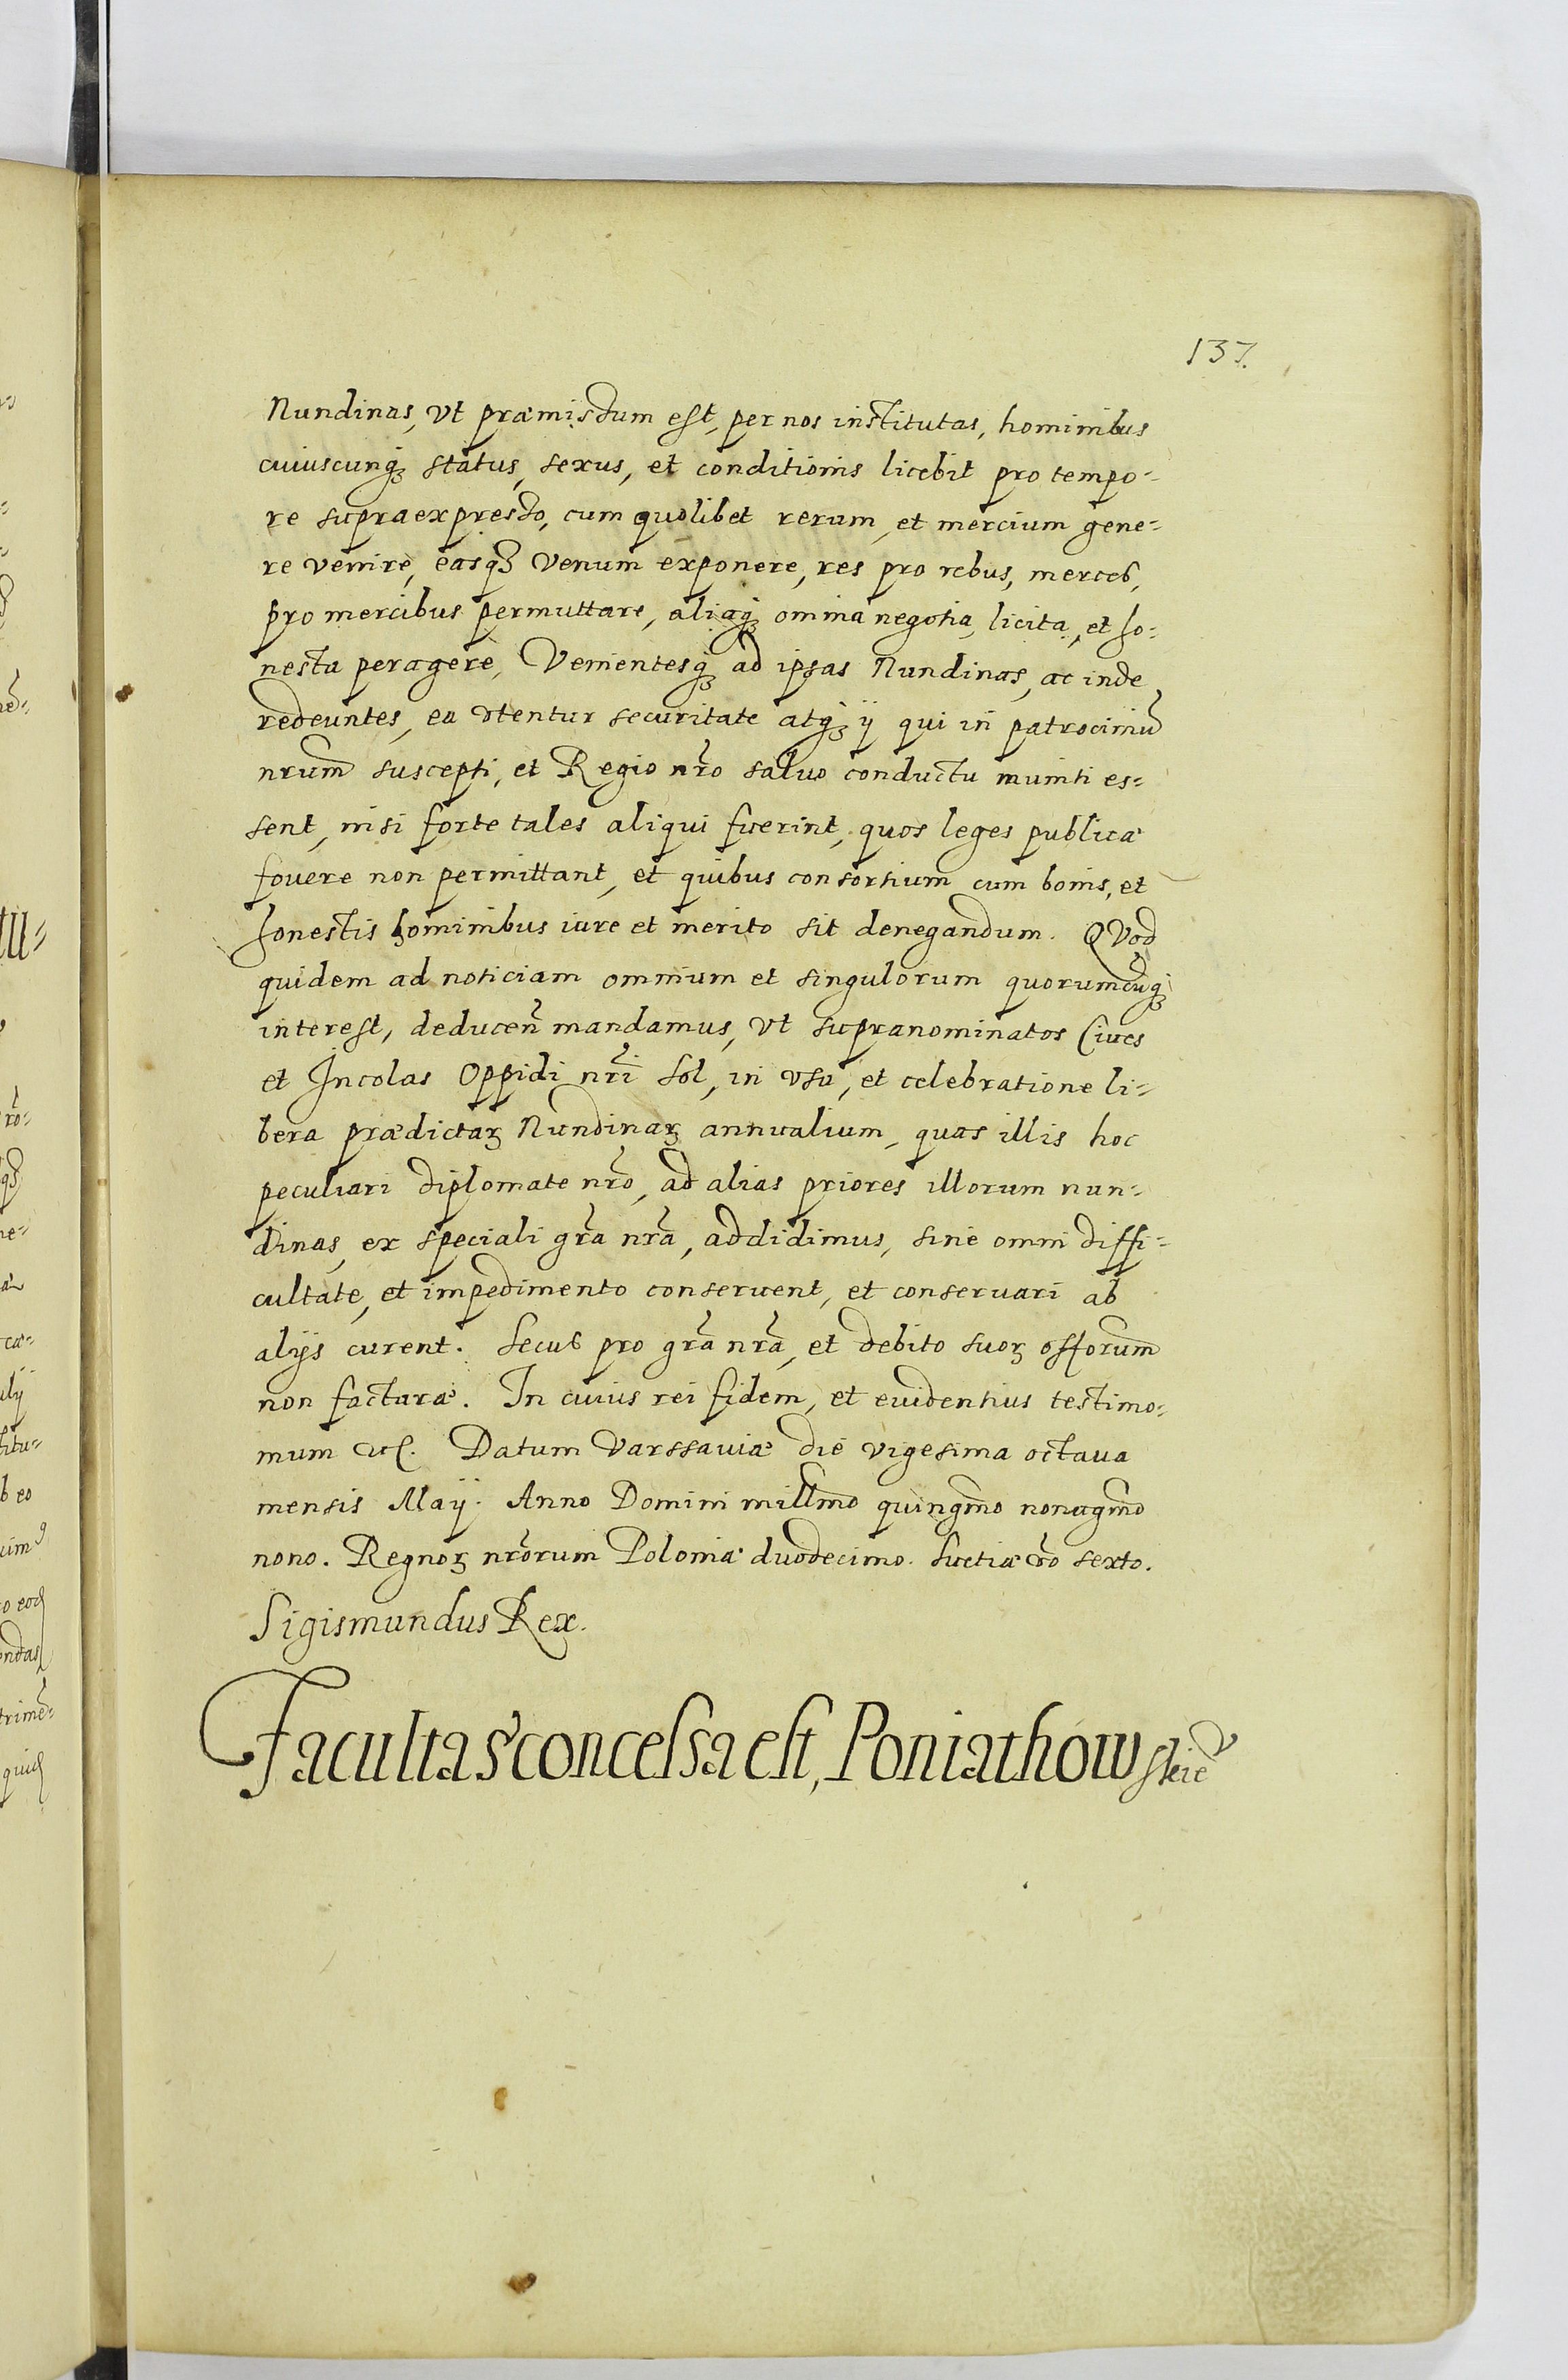 137.
Nundinas, vt præmissum est, per nos institutas, hominibus
cuiuscunqꝫ status, sexus, et conditionis licebit pro tempo-
re supraexpresso, cum quolibet rerum, et mercium gene-
re venire, easqꝫ venum exponere, res pro rebus, merces,
pro mercibus permuttare, aliaqꝫ omnia negotia, licita, et ho-
nesta peragere, Venientesqꝫ ad ipsas Nundinas, ac inde
redeuntes, ea vtentur securitate atqꝫ ij qui in patrociniũ
nrum̃ suscepti, et Regio nr̃o saluo conductu muniti es-
sent, nisi forte tales aliqui fuerint, quos leges publicæ
fouere non permittant, et quibus consortium cum bonis, et
honestis hominibus iure et merito sit denegandum. QVod
quidem ad noticiam omnium et singulorum quorumcũqꝫ
interest, deduceñ mandamus, vt supranominatos Ciues
et Incolas Oppidi nr̃i Sol, in vsu, et celebratione li-
bera prædictaꝝ Nundinaꝝ annualium, quas illis hoc
peculiari diplomate nr̃o, ad alias priores illorum nun-
dinas, ex speciali gr̃a nr̃a, addidimus, sine omni diffi-
cultate, et impedimento conseruent, et conseruari ab
alijs curent. Secus pro gr̃a nr̃a, et debito suoꝝ offorum̃
non facturæ. In cuius rei fidem, et euidentius testimo-
nium etc. Datum Varssauiæ die vigesima octaua
mensis Maij. Anno Domini millm̃o quingm̃o nonagm̃o
nono. Regnoꝝ nr̃orum Poloniæ duodecimo. Suetiæ ṽo sexto.
Sigismundus Rex.
Facultas concessa est, Poniathowskie